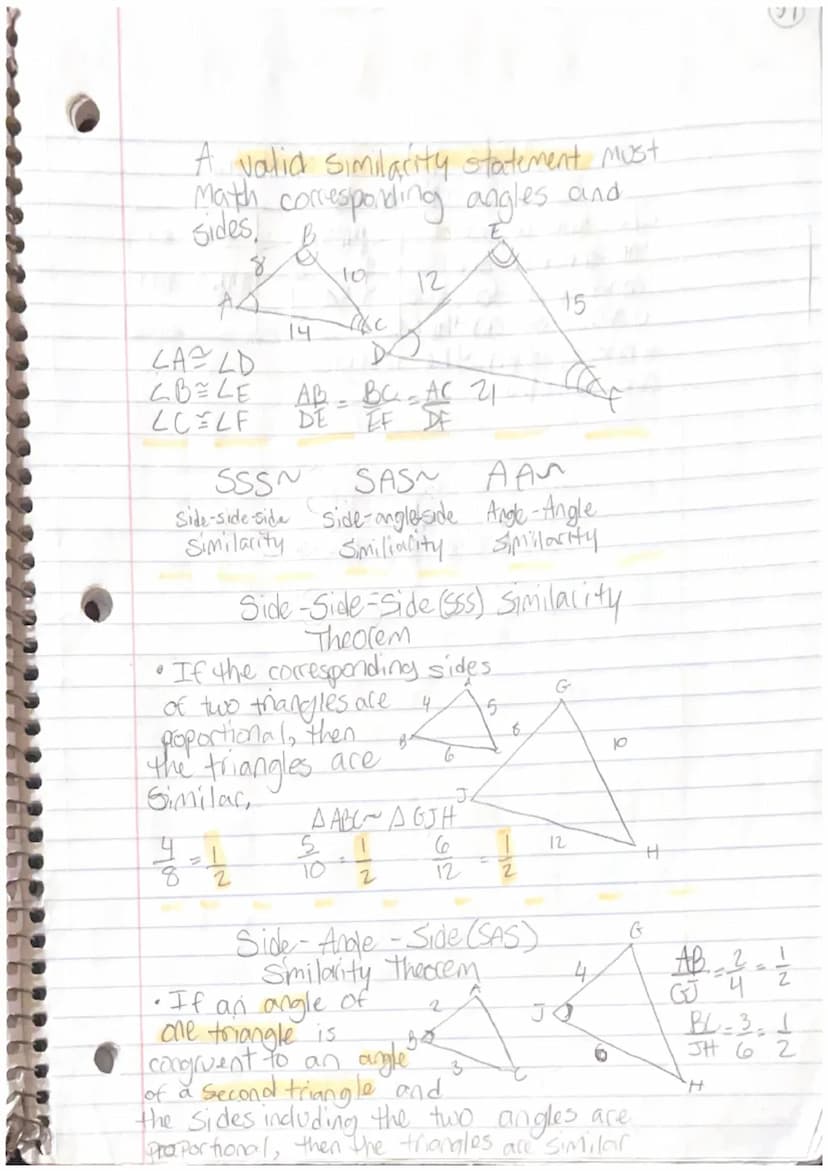 A valid similarity statement must
Math corresponding angles and
sides.
B
E
8
10
12
15
A
C
14
D
F
21
∠A≅∠D
∠B≅∠E
∠C≅∠F
AB/DE = BC/EF = AC/DF
SSS~ SAS~ AA~
Side-side-side Side-angle-side Angle-Angle
Similarity Similiarity Similarity
Side-Side-Side (SSS) Similarity
Theorem
• If the corresponding sides
of two triangles are
proportional, then
the triangles are
Similar,
A
4
5
B
6
G
8
10
J
12
H
△ABC~△GJH
4/8 = 1/2 5/10 = 1/2 6/12 = 1/2
Side-Angle-Side (SAS)
Similarity Theorem
• If an angle of
one triangle is
congruent to an angle
of a second triangle and
the sides including the two angles are
proportional, then the triangles are similar
A
2
B
3
C
G
4
J
6
H
AB/GJ = 2/4 = 1/2
BC/JH = 3/6 = 1/2